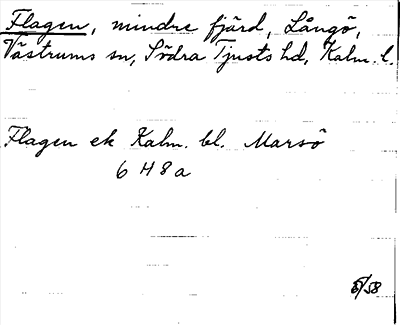 Flagen, mindre fjärd, Långö,
Västrums sn, Södra Tjusts hd, Kalm. l.
Flagen ek Kalm. bl. Marsö
6 H 8 a
/58